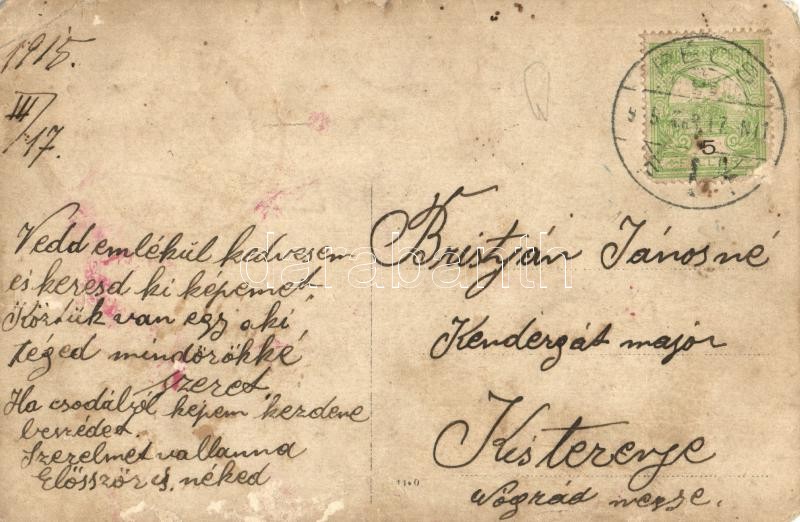 1915.
III/17.
Vedd emlékül kedvesem
és keresd ki képemet,
Köztük van egy aki
téged mindörökké
szeret.
Ha csodából képem kezdene
beszédet
Szerelmet vallanna
Elősször is néked
Bristyán Jánosné
Kendergát major
Kisterenye
Nógrád megye.
5
PÉCS
darabanth